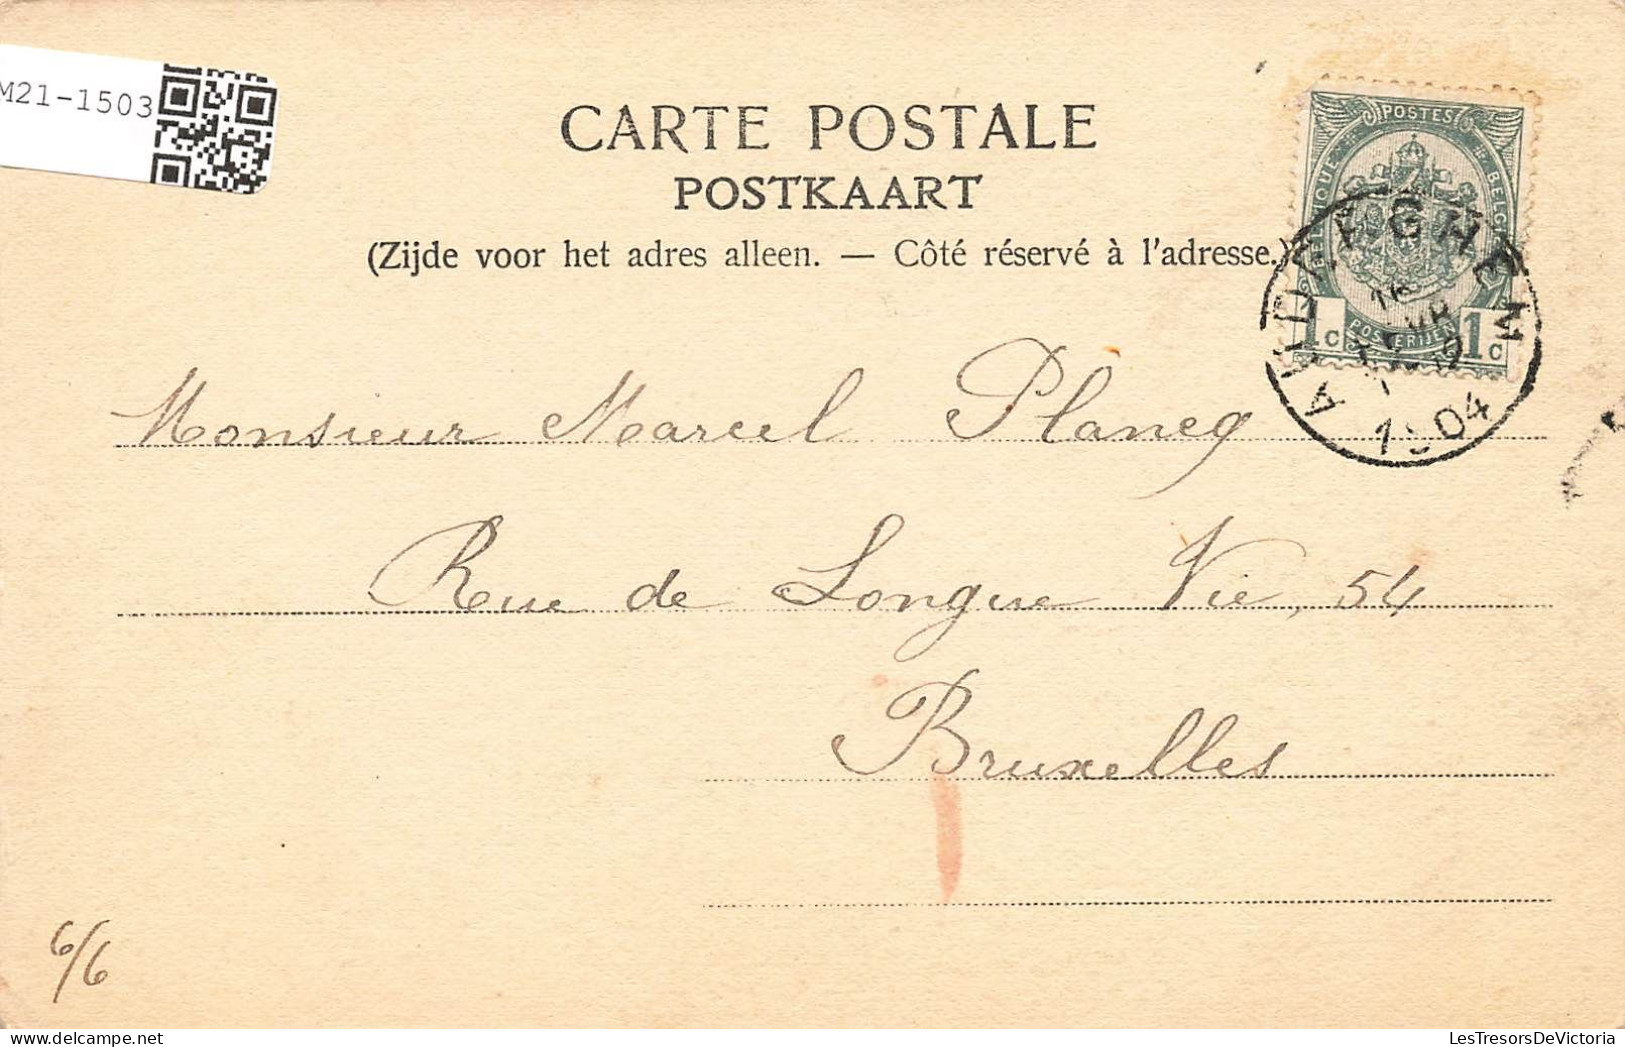 M21-1503
CARTE POSTALE
POSTKAART
(Zijde voor het adres alleen. — Côté réservé à l'adresse.)
POSTES
BELGIQUE
BELGIE
POSTERIJEN
1c 1c
AUDERGHEM
1904
Monsieur Marcel Plancq
Rue de Longue Vie, 54
Bruxelles
6/6
LesTresorsDeVictoria